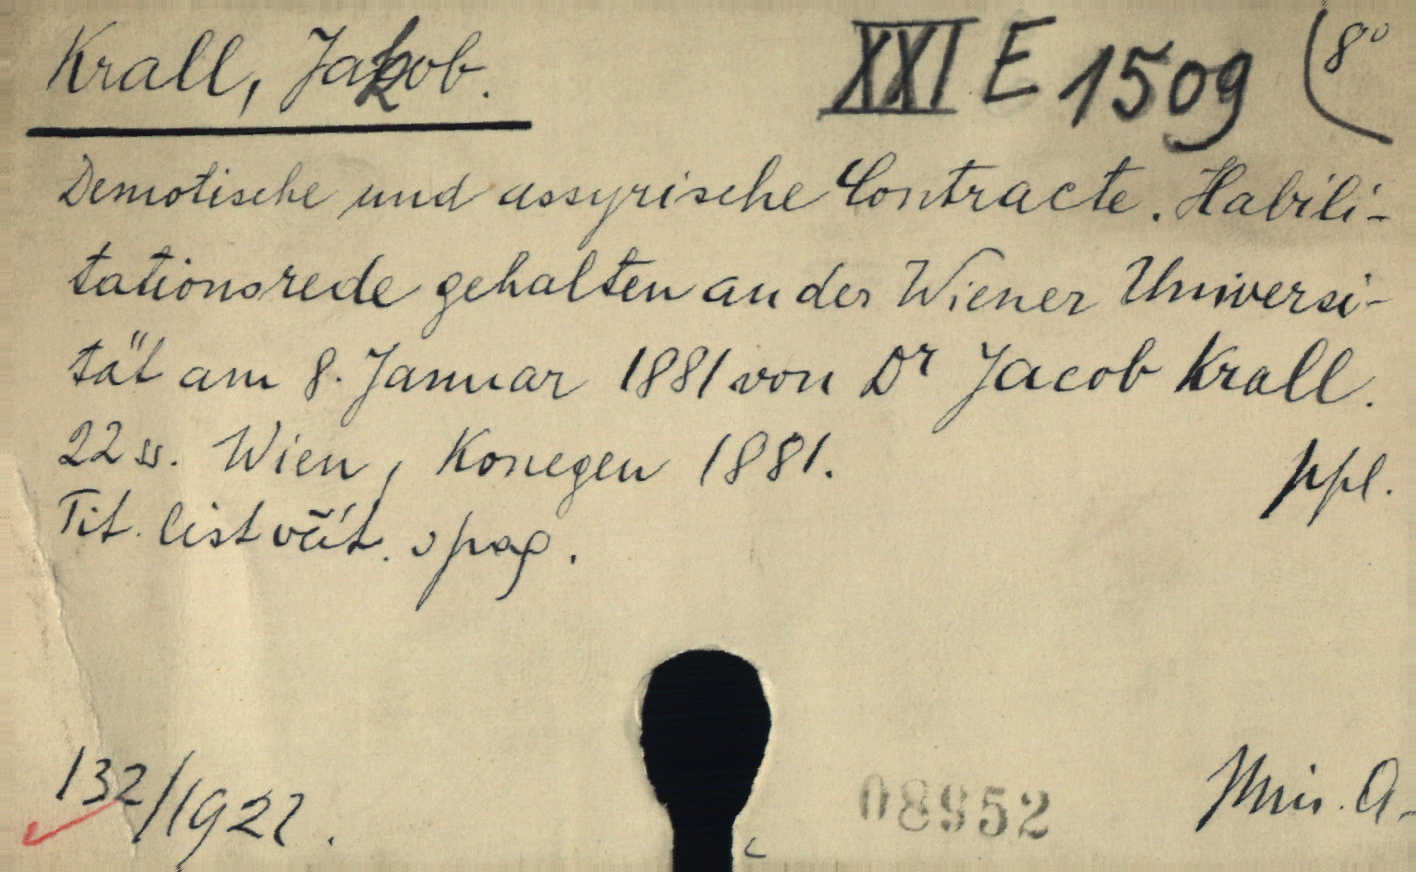 Krall, Jakob.
XXI E 1509 (8°
Demotische und assyrische Contracte. Habili-
tationsrede gehalten an der Wiener Universi-
tät am 8. Januar 1881 von Dr Jacob Krall.
22 ss. Wien, Konegen 1881.
ppl.
Tit. list včít. v pag.
132/1922.
08952
Min. A.